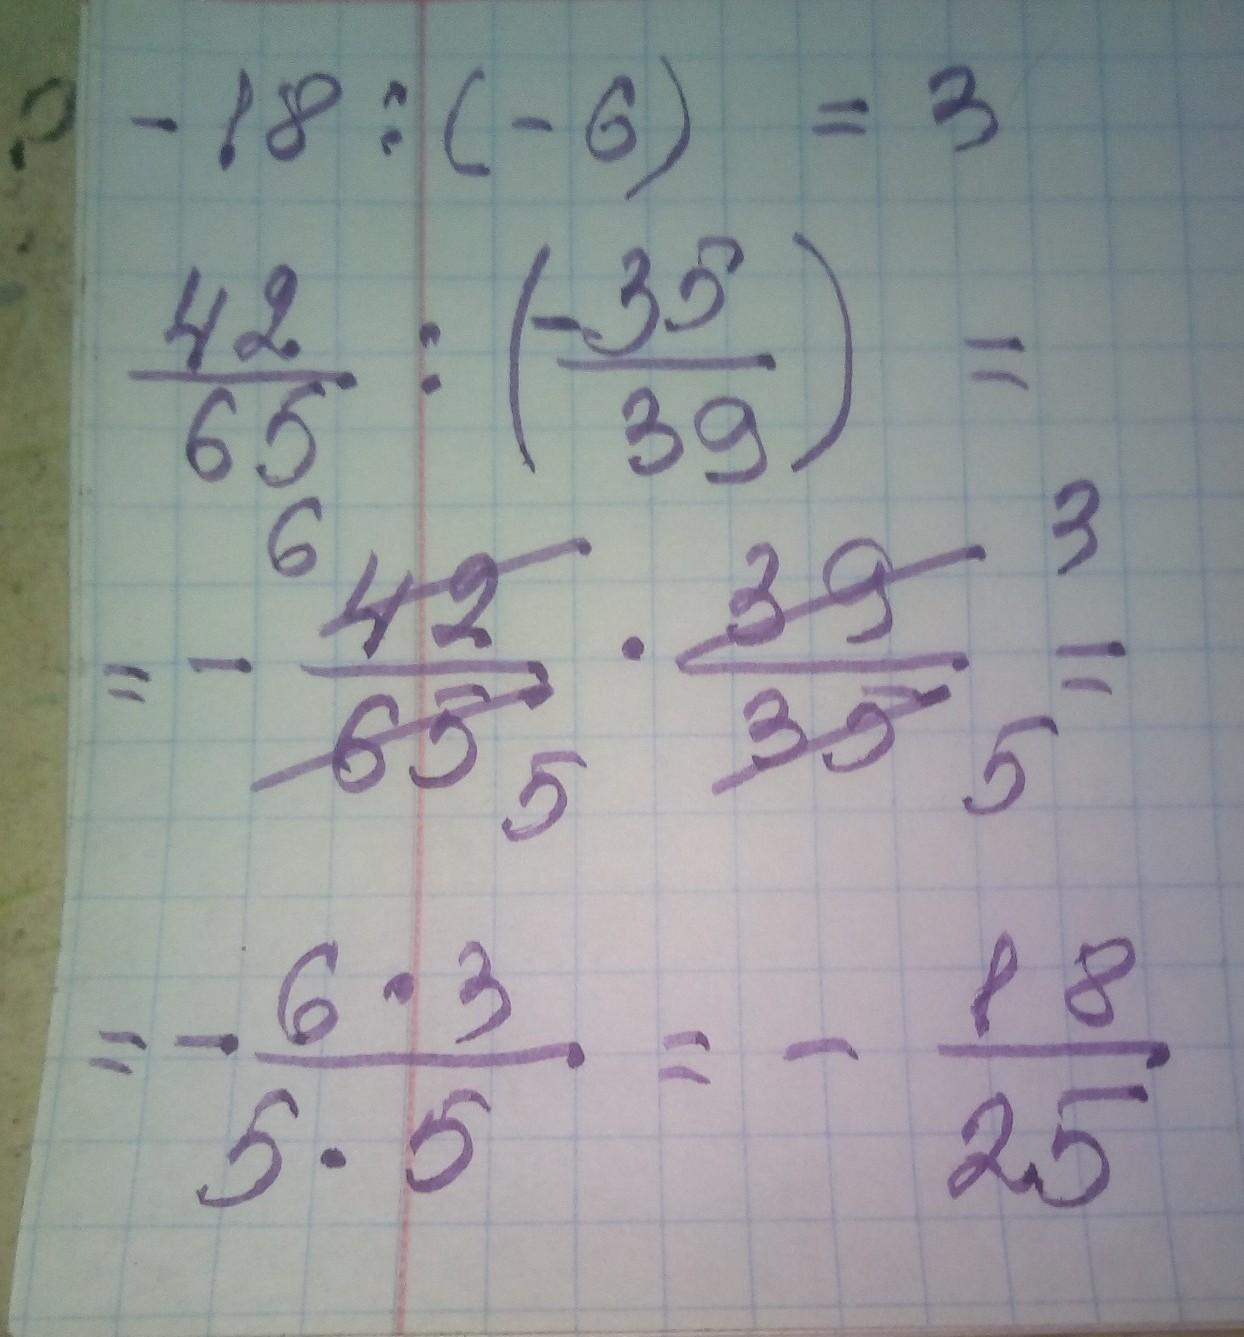 - 18 : (- 6) = 3
42/65 : (-35/39) =
= - 42/65 · 39/35 =
6 5 3 5
= - 6 · 3 / 5 · 5 = - 18/25